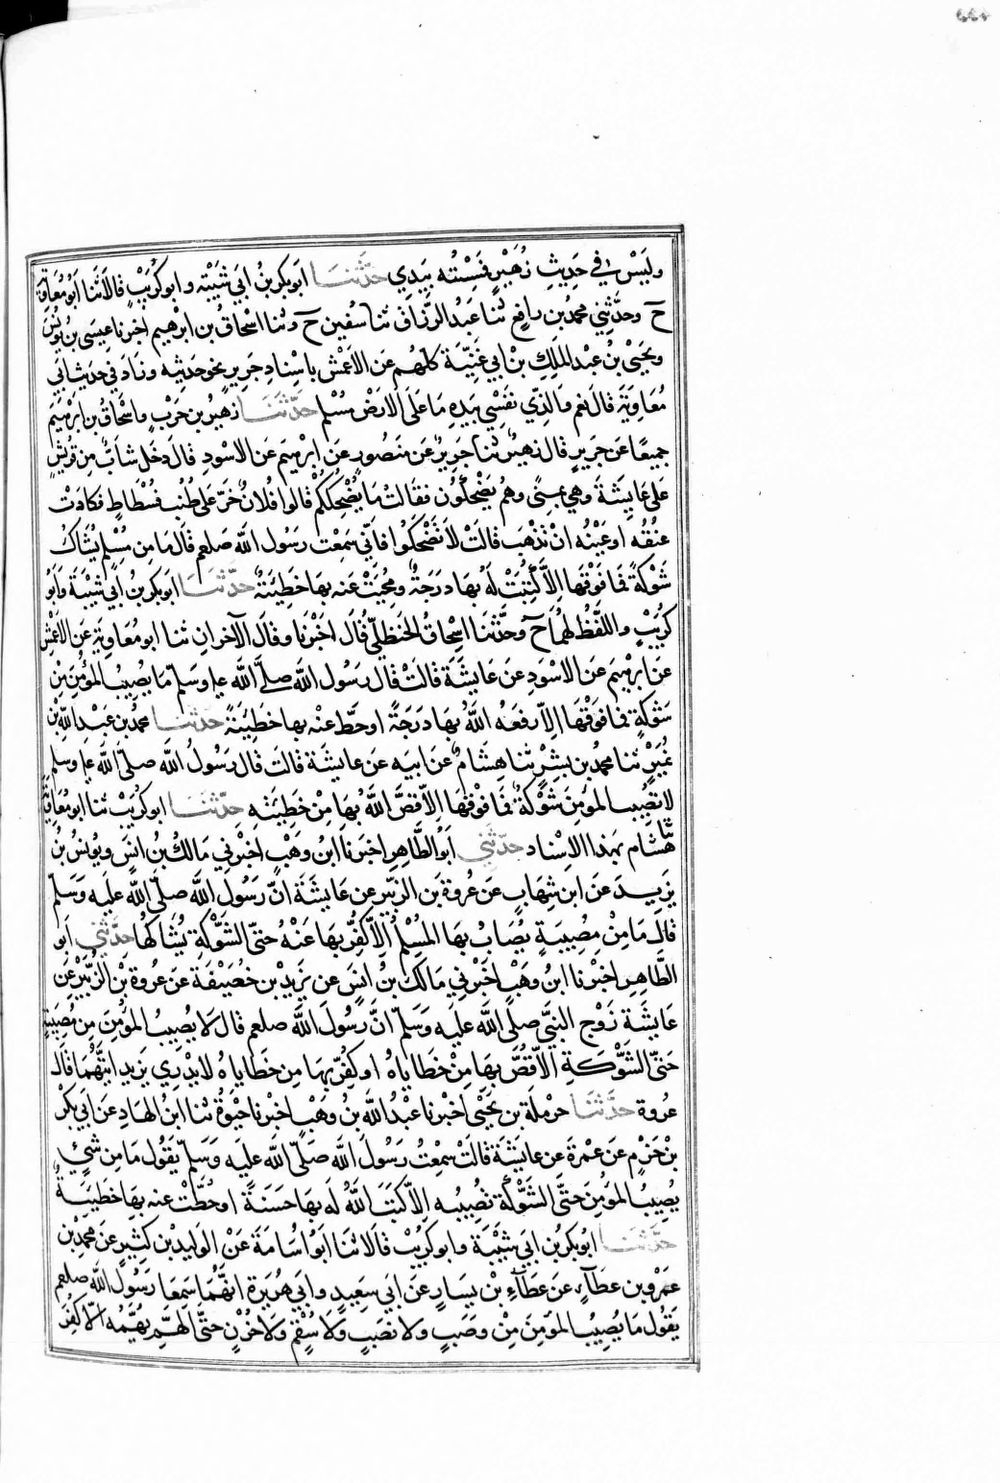 وليس في حديث زهير فمسسته بيدي حدثنا ابو بكر بن ابي شيبة وابو كريب قالا ثنا ابو معاوية
ح وحدثني محمد بن رافع ثنا عبد الرزاق ثنا سفين ح وثنا اسحاق بن ابرهيم اخبرنا عيسى بن يونس
ويحيى بن عبد الملك بن ابي غنية كلهم عن الاعمش باسناد جرير نحو حديثه وزاد في حديث ابي
معاوية قال نعم والذي نفسي بيده ما على الارض مسلم حدثنا زهير بن حرب واسحاق بن ابرهيم
جميعا عن جرير قال زهير ثنا جرير عن منصور عن ابرهيم عن الاسود قال دخل شاب من قريش
على عايشة وهي بمنى وهم يضحكون فقالت ما يضحككم قالوا فلان خر على طنب فسطاط فكادت
عنقه او عينه ان تذهب قالت لا تضحكوا فاني سمعت رسول الله صلعم قال ما من مسلم يشاك
شوكة فما فوقها الا كتبت له بها درجة ومحيت عنه بها خطيئة حدثنا ابو بكر بن ابي شيبة وابو
كريب واللفظ لهما ح وحدثنا اسحاق الحنظلي قال اخبرنا وقال الآخران ثنا ابو معاوية عن الاعمش
عن ابرهيم عن الاسود عن عايشة قالت قال رسول الله صلى الله عليه وسلم ما يصيب المؤمن من
شوكة فما فوقها الا رفعه الله بها درجة او حط عنه بها خطيئة حدثنا محمد بن عبد الله بن
نمير ثنا محمد بن بشر ثنا هشام عن ابيه عن عايشة قالت قال رسول الله صلى الله عليه وسلم
لا تصيب المؤمن شوكة فما فوقها الا قص الله بها من خطيئته حدثنا ابو كريب ثنا ابو معاوية ثنا
هشام بهذا الاسناد حدثني ابو الطاهر اخبرنا ابن وهب اخبرني مالك بن انس ويونس بن
يزيد عن ابن شهاب عن عروة بن الزبير عن عايشة ان رسول الله صلى الله عليه وسلم
قال ما من مصيبة يصاب بها المسلم الا كفر بها عنه حتى الشوكة يشاكها حدثني ابو
الطاهر اخبرنا ابن وهب اخبرني مالك بن انس عن يزيد بن خصيفة عن عروة بن الزبير عن
عايشة زوج النبي صلى الله عليه وسلم ان رسول الله صلعم قال لا يصيب المؤمن من مصيبة
حتى الشوكة الا قص بها من خطاياه او كفر بها من خطاياه لا يدري يزيد ايتهما قال
عروة حدثنا حرملة بن يحيى اخبرنا عبد الله بن وهب اخبرنا حيوة ثنا ابن الهاد عن ابي بكر
بن حزم عن عمرة عن عايشة قالت سمعت رسول الله صلى الله عليه وسلم يقول ما من شيء
يصيب المؤمن حتى الشوكة تصيبه الا كتب الله له بها حسنة او حطت عنه بها خطيئة
حدثنا ابو بكر بن ابي شيبة وابو كريب قالا ثنا ابو اسامة عن الوليد بن كثير عن محمد بن
عمرو بن عطاء عن عطاء بن يسار عن ابي سعيد وابي هريرة انهما سمعا رسول الله صلعم
يقول ما يصيب المؤمن من وصب ولا نصب ولا سقم ولا حزن حتى الهم يهمه الا كفر